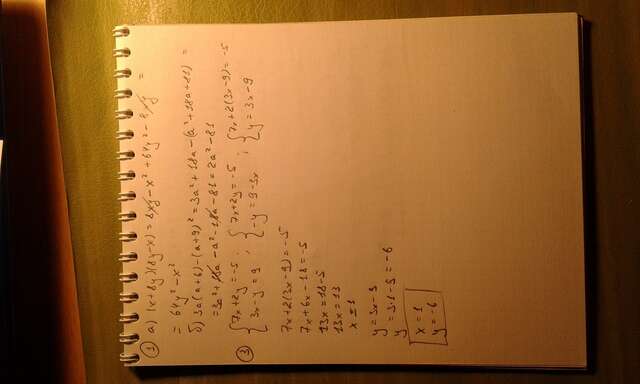 ① а) (x+8y)(8y-x) = 8xy - x² + 64y² - 8xy =
= 64y² - x²
б) 3a(a+6) - (a+9)² = 3a² + 18a - (a² + 18a + 81) =
= 3a² + 18a - a² - 18a - 81 = 2a² - 81
③ { 7x+2y = -5 ; { 7x+2y = -5 ; { 7x+2(3x-9) = -5
3x-y = 9 -y = 9-3x y = 3x-9
7x+2(3x-9) = -5
7x+6x-18 = -5
13x = 18-5
13x = 13
x = 1
y = 3x-9
y = 3·1-9 = -6
x = 1
y = -6